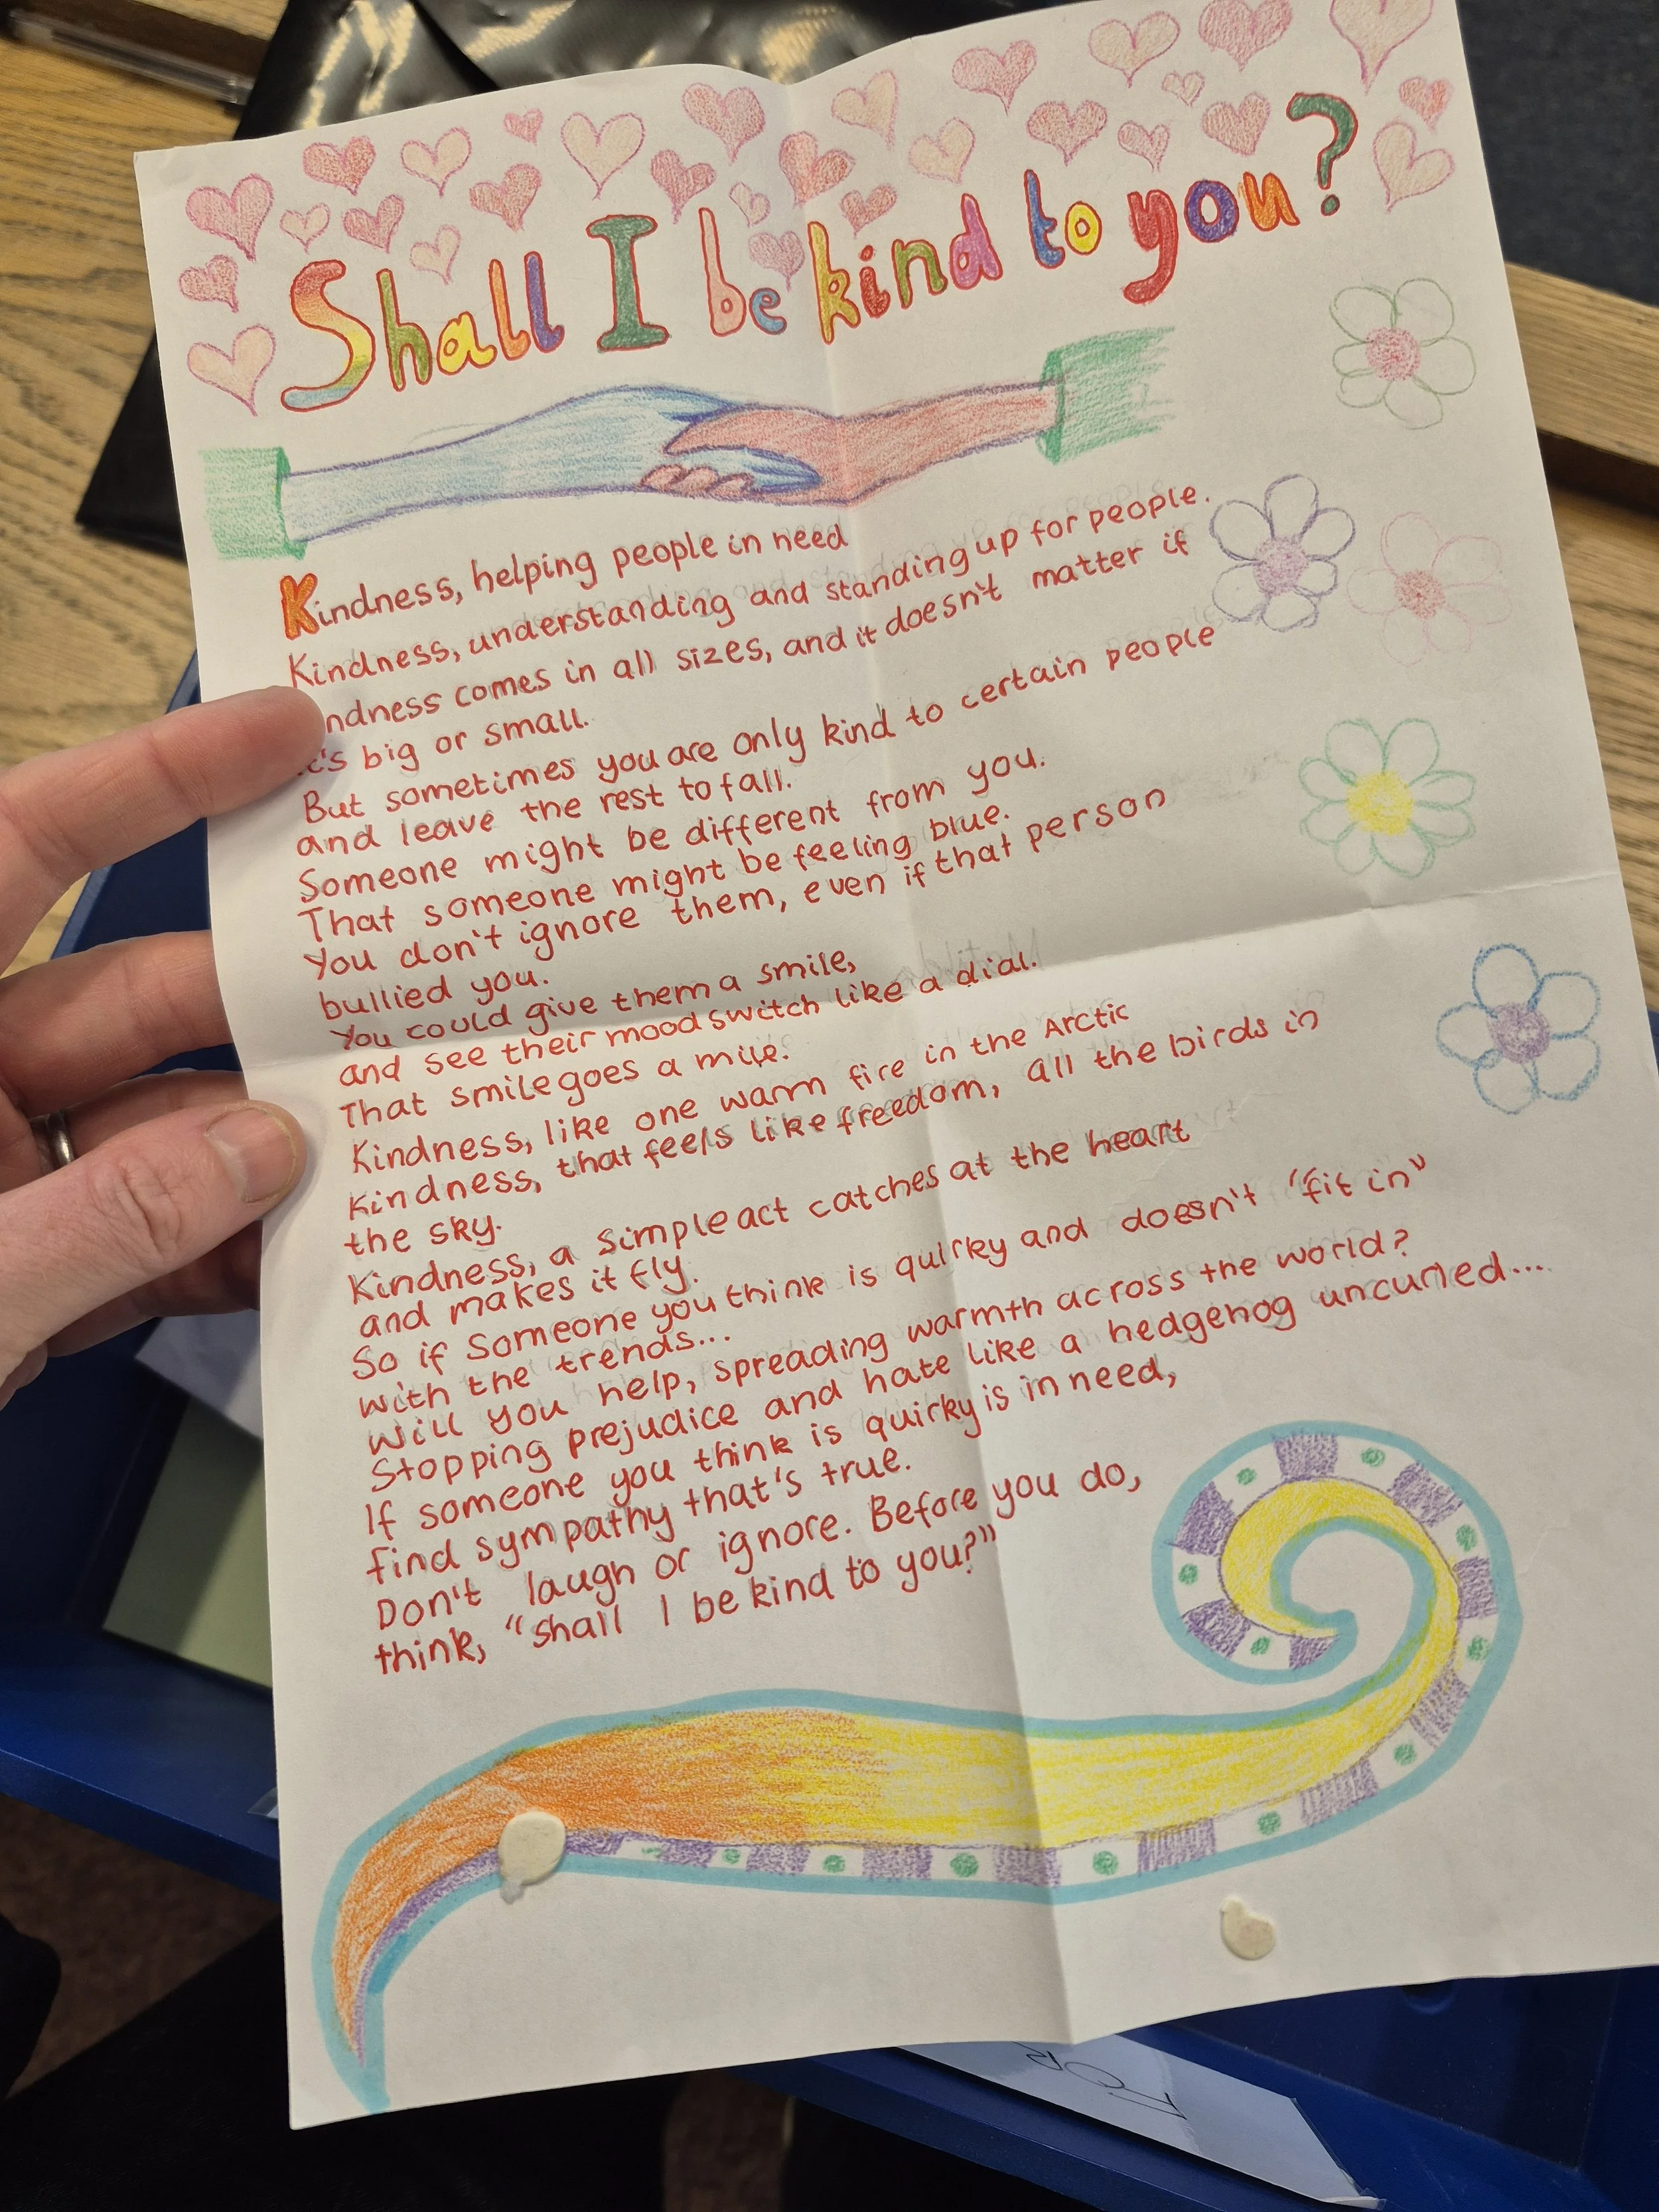 Shall I be kind to you?
Kindness, helping people in need
Kindness, understanding and standing up for people.
ndness comes in all sizes, and it doesn't matter if
it's big or small.
But sometimes you are only kind to certain people
and leave the rest to fall.
Someone might be different from you.
That someone might be feeling blue.
You don't ignore them, even if that person
bullied you.
You could give them a smile,
and see their mood switch like a dial.
That smile goes a mile.
Kindness, like one warm fire in the Arctic
Kindness, that feels like freedom, all the birds in
the sky.
Kindness, a simple act catches at the heart
and makes it fly.
So if someone you think is quirky and doesn't "fit in"
with the trends...
Will you help, spreading warmth across the world?
Stopping prejudice and hate like a hedgehog uncurled...
If someone you think is quirky is in need,
find sympathy that's true.
Don't laugh or ignore. Before you do,
think, "Shall I be kind to you?"